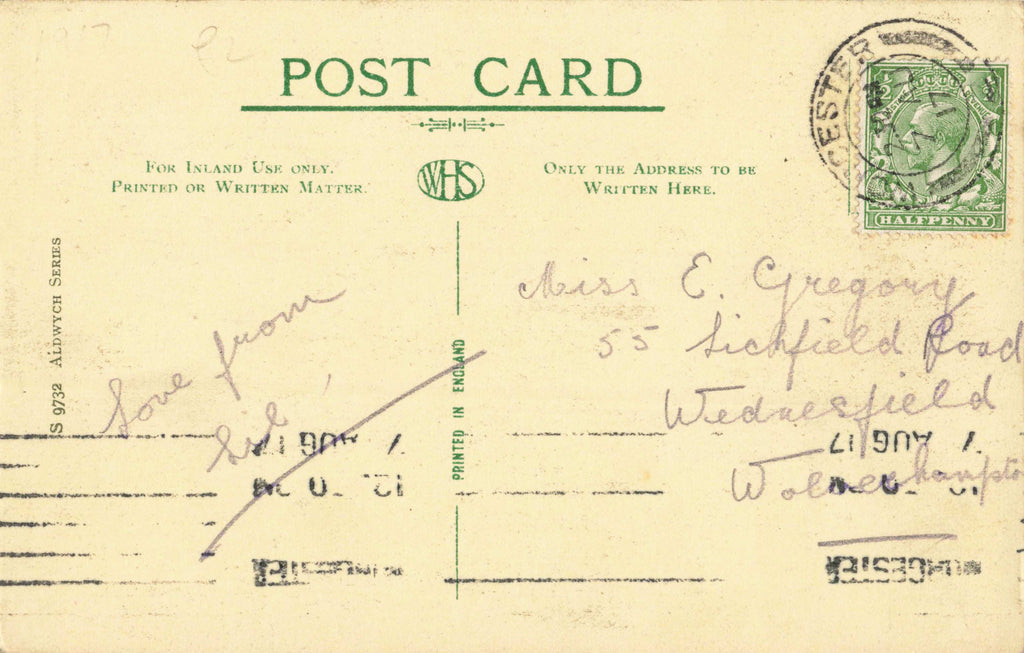 POST CARD
FOR INLAND USE ONLY.
PRINTED OR WRITTEN MATTER.
WHS
ONLY THE ADDRESS TO BE
WRITTEN HERE.
CESTER
HALFPENNY
S 9732 ALDWYCH SERIES
PRINTED IN ENGLAND
Love from
Sil
Miss E. Gregory
55 Lichfield Road
Wednesfield
Wolverhampton
7 AUG 17
7 AUG 17
WORCESTER
WORCESTER